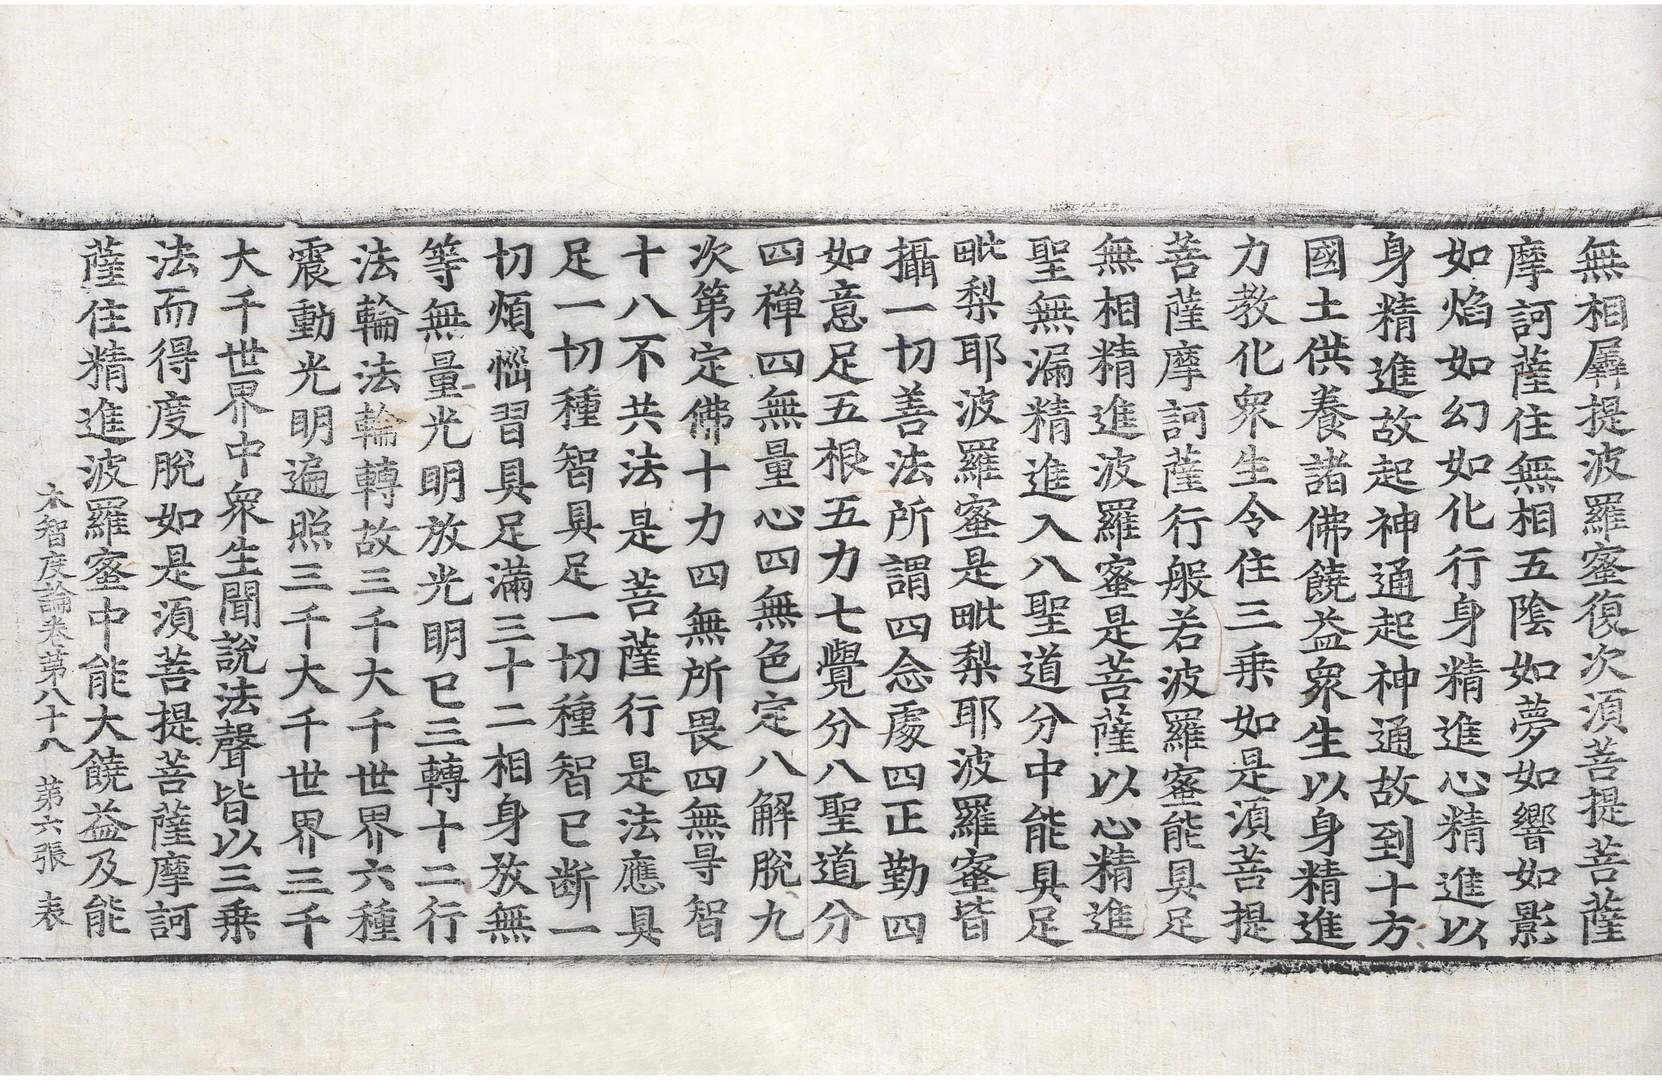 無相羼提波羅蜜復次須菩提菩薩
摩訶薩住無相五陰如夢如響如影
如焰如幻如化行身精進心精進以
身精進故起神通起神通故到十方
國土供養諸佛饒益衆生以身精進
力教化衆生令住三乗如是須菩提
菩薩摩訶薩行般若波羅蜜能具足
無相精進波羅蜜是菩薩以心精進
聖無漏精進入八聖道分中能具足
毗梨耶波羅蜜是毗梨耶波羅蜜皆
攝一切善法所謂四念處四正勤四
如意足五根五力七覺分八聖道分
四禪四無量心四無色定八解脫九
次第定佛十力四無所畏四無㝵智
十八不共法是菩薩行是法應具
足一切種智具足一切種智已断一
切煩惱習具足滿三十二相身放無
等無量光明放光明已三轉十二行
法輪法輪轉故三千大千世界六種
震動光明遍照三千大千世界三千
大千世界中衆生聞說法聲皆以三乗
法而得度脫如是須菩提菩薩摩訶
薩住精進波羅蜜中能大饒益及能
大智度論卷第八十八　第六張　表